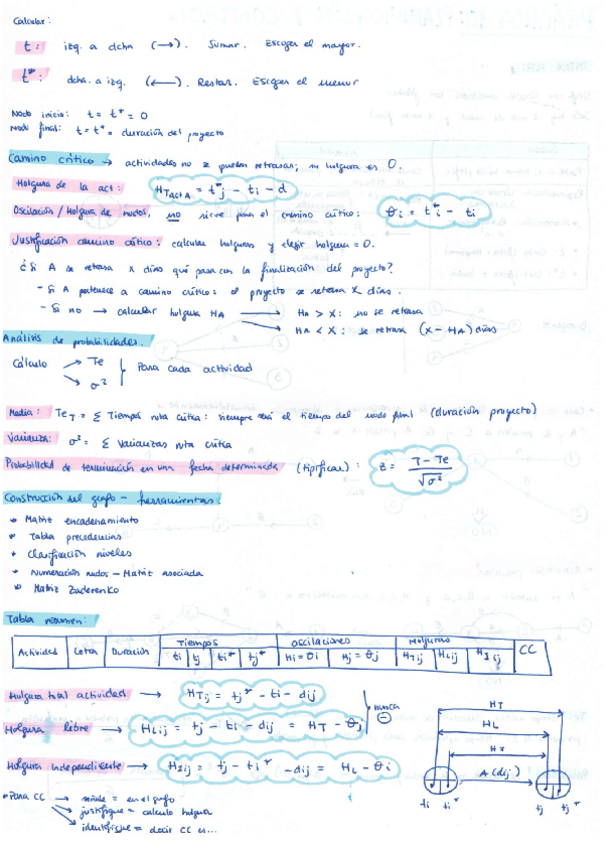 Calcular:
t: izq. a dcha (→). Sumar. Escoger el mayor.
t*: dcha. a izq. (←). Restar. Escoger el menor
Nodo inicio: t = t* = 0
Nodo final: t = t* = duración del proyecto
Camino crítico → actividades no se pueden retrasar; su holgura es 0.
Holgura de la act: HTactA = t*j - ti - d
Oscilación/Holgura de nudos, no sirve para el camino crítico: θi = t*i - ti
Justificación camino crítico: calcular holguras y elegir holgura = 0.
¿Si A se retrasa x días qué pasa con la finalización del proyecto?
- Si A pertenece a camino crítico: el proyecto se retrasa x días.
- Si no → calcular holgura HA → HA > x: no se retrasa
→ HA < x: se retrasa (x - HA) días
Análisis de probabilidades.
Cálculo → Te
→ σ² } Para cada actividad
Media: TeT = Σ Tiempos ruta crítica: siempre será el tiempo del nudo final (duración proyecto)
Varianza: σ² = Σ Varianzas ruta crítica
Probabilidad de terminación en una fecha determinada (tipificar): z = T - Te / √σ²
Construcción del grafo - herramientas:
* Matriz encadenamiento
* Tabla precedencias
* Clasificación niveles
* Numeración nudos - Matriz asociada
* Matriz Zaderenko
Tabla resumen:
Actividad Letra Duración Tiempos Oscilaciones Holguras CC
ti tj ti* tj* Hi = θi Hj = θj HTij HLij HIij
Holgura total actividad → HTij = tj* - ti - dij
Holgura libre → HLij = tj - ti - dij = HT - θj
nunca ⊖
Holgura independiente → HIij = tj - ti* - dij = HL - θi
HT
HL
HI
A (dij)
ti ti* tj tj*
* Para CC → señale = en el grafo
→ justifique = calculo holgura
→ identifique = decir CC es...